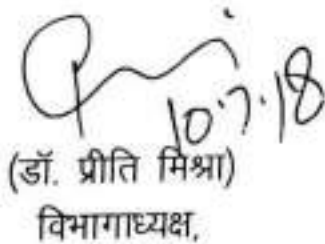 10.7.18
(डॉ. प्रीति मिश्रा)
विभागाध्यक्ष,